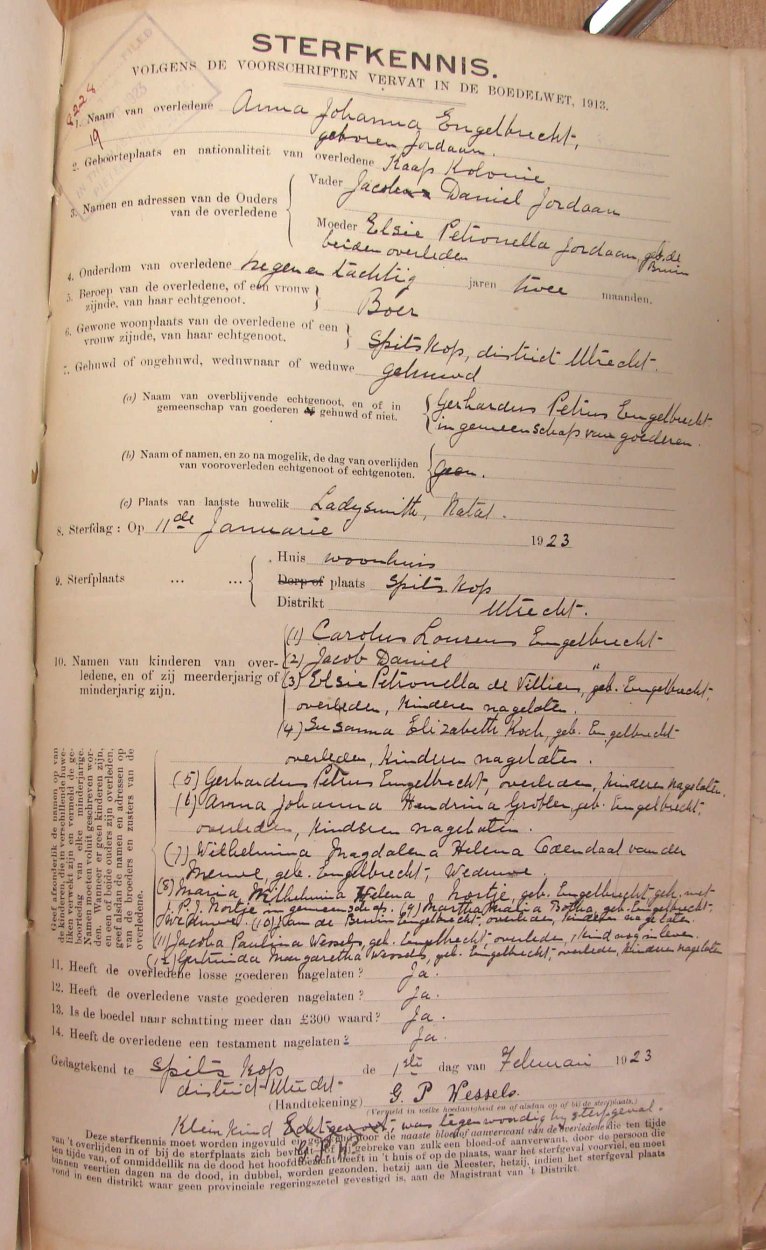 STERFKENNIS.
VOLGENS DE VOORSCHRIFTEN VERVAT IN DE BOEDELWET, 1913.
FILED
8228
19
1. Naam van overledene Anna Johanna Engelbrecht,
geboren Jordaan.
2. Geboorteplaats en nationaliteit van overledene Kaap Kolonie
3. Namen en adressen van de Ouders van de overledene
Vader Jacobus Daniel Jordaan
Moeder Elsie Petronella Jordaan, geb. de Bruin
beiden overleden
4. Onderdom van overledene negen en tachtig jaren twee maanden.
5. Beroep van de overledene, of een vrouw
zijnde, van haar echtgenoot. Boer
6. Gewone woonplaats van de overledene of een
vrouw zijnde, van haar echtgenoot. Spitskop, district Utrecht.
7. Gehuwd of ongehuwd, weduwnaar of weduwe gehuwd
(a) Naam van overblijvende echtgenoot, en of in
gemeenschap van goederen gehuwd of niet.
Gerhardus Petrus Engelbrecht
in gemeenschap van goederen.
(b) Naam of namen, en zo na mogelik, de dag van overlijden
van vooroverleden echtgenoot of echtgenoten. Geen.
(c) Plaats van laatste huwelik Ladysmith, Natal.
8. Sterfdag: Op 11de Januarie 1923
9. Sterfplaats ... ...
Huis woonhuis
Dorp of plaats Spits Kop
Distrikt Utrecht.
10. Namen van kinderen van over-
ledene, en of zij meerderjarig of
minderjarig zijn.
(1) Carolus Lourens Engelbrecht
(2) Jacob Daniel "
(3) Elsie Petronella de Villiers, geb. Engelbrecht,
overleden, kinderen nagelaten.
(4) Susanna Elizabeth Koch, geb. Engelbrecht
overleden, kinderen nagelaten.
Geef afzonderlik de namen op van
de kinderen, die in verschillende huwe-
liken verwekt zijn en vermeld de ge-
boortedag van elke minderjarige.
Namen moeten voluit geschreven wor-
den. Wanneer er geen kinderen zijn,
en een of beide ouders zijn overleden,
geef alsdan de namen en adressen op
van de broeders en zusters van de
overledene.
(5) Gerhardus Petrus Engelbrecht, overleden, kinderen nagelaten.
(6) Anna Johanna Hendrina Grobler, geb. Engelbrecht,
overleden, kinderen nagelaten.
(7) Wilhelmina Magdalena Helena Coendaat van der
Merwe, geb. Engelbrecht, Weduwe.
(8) Maria Wilhelmina Helena Nortje, geb. Engelbrecht, geh. met
P.J. Nortje in gemeenschap. (9) Martha Maria Botha, geb. Engelbrecht,
Weduwe. (10) Jan de Bruin Engelbrecht, overleden, kinderen nagelaten.
(11) Jacoba Paulina Wessels, geb. Engelbrecht, overleden, 1 kind nog in leven.
(12) Gertruida Margaretha Wessels, geb. Engelbrecht, overleden, kinderen nagelaten
11. Heeft de overledene losse goederen nagelaten? Ja.
12. Heeft de overledene vaste goederen nagelaten? Ja.
13. Is de boedel naar schatting meer dan £300 waard? Ja.
14. Heeft de overledene een testament nagelaten? Ja.
Gedagtekend te Spits Kop de 1ste dag van Februari 1923
district Utrecht
(Handtekening) G. P. Wessels.
(Vermeld in welke hoedanigheid en of alsdan op of bij de sterfplaats.)
Kleinkind Echtgenoot, was tegenwoordig bij sterfgeval.
G. P. W.
Deze sterfkennis moet worden ingevuld en getekend door de naaste bloed of aanverwant van de overledene die ten tijde
van 't overlijden in of bij de sterfplaats zich bevindt, of bij gebreke van zulk een bloed- of aanverwant, door de persoon die
ten tijde van, of onmiddellik na de dood het hoofdtoezicht heeft in 't huis of op de plaats, waar het sterfgeval voorviel, en moet
binnen veertien dagen na de dood, in dubbel, worden gezonden, hetzij aan de Meester, hetzij, indien het sterfgeval plaats
vond in een distrikt waar geen provinciale regeringszetel gevestigd is, aan de Magistraat van 't Distrikt.